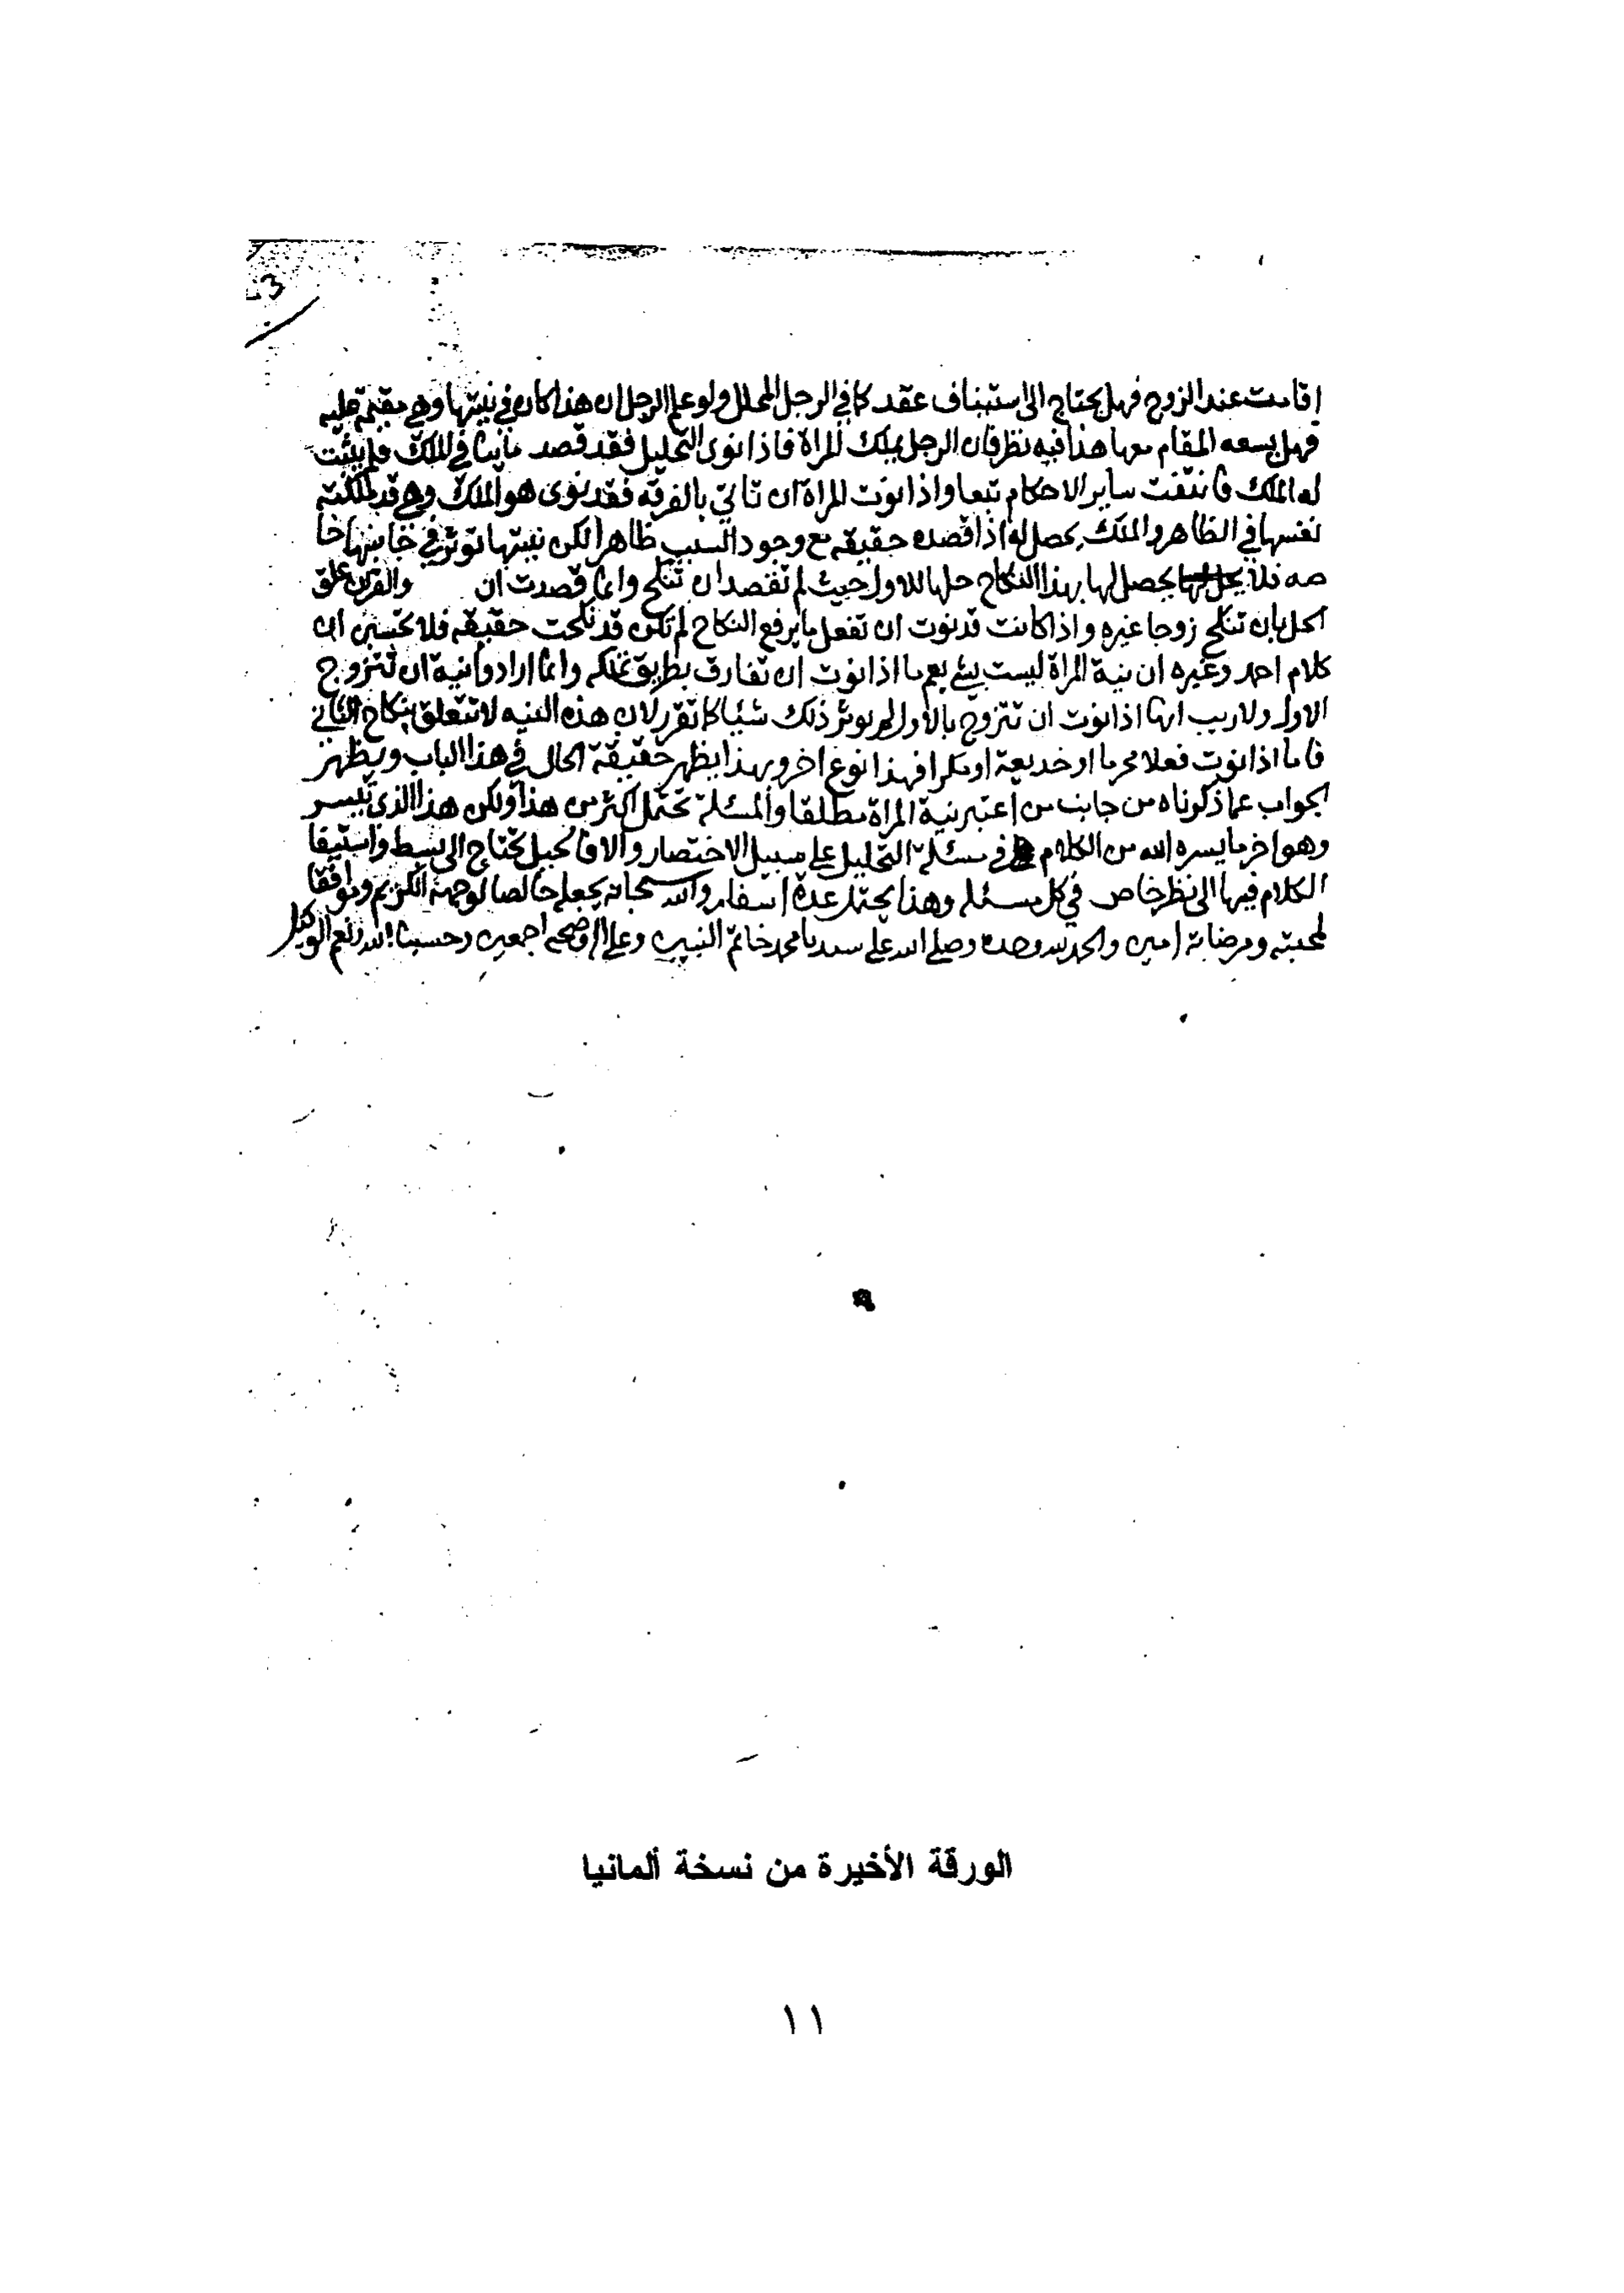 اقامت عند الزوج فهل يحتاج الى استيناف عقد كما في الرجل المحلل ولو علم الرجل ان هذا كان في نيتها وهي مقيمة عليه
فهل يسعه المقام معها هذا فيه نظر فان الرجل يملك المراة فاذا نوى التحليل فقد قصد ما ينافي الملك فلم يثبت
له الملك فانتفت ساير الاحكام تبعا واذا نوت المراة ان تاتي بالفرقه فقد نوى هو الملك وهي قد ملكته
نفسها في الظاهر والملك يحصل له اذا قصده حقيقه مع وجود السبب ظاهرا لكن نيتها توثر في جانبها خا
صه فلا يحصل لها بهذا النكاح حلها للاول حيث لم تقصد ان تنكح وانما قصدت ان والقران علق
الحل بان تنكح زوجا غيره واذا كانت قد نوت ان تفعل ما يرفع النكاح لم تكن قد نكحت حقيقه فلا تحسبن ان
كلام احمد وغيره ان نية المراة ليست بشي يعم ما اذا نوت ان تفارق بطريق تملكه وانما ارادوا نية ان تتزوج
الاول ولا ريب انها اذا نوت ان تتزوج بالاول لم يوثر ذلك شيا كما تقرر لان هذه النيه لا تتعلق بنكاح الثاني
فاما اذا نوت فعلا محرما او خديعة او مكرا فهذا نوع اخر وبهذا يظهر حقيقة الحال في هذا الباب ويظهر
الجواب عما ذكرناه من جانب من اعتبر نية المراة مطلقا والمسئلة تحتمل اكثر من هذا ولكن هذا الذي تيسر
وهو اخر ما يسره الله من الكلام في مسئلة التحليل على سبيل الاختصار والا فالحيل يحتاج الى بسط واستيفا
الكلام فيها الى نظر خاص في كل مسئله وهذا يحتمل عدة اسفار والله سبحانه يجعله خالصا لوجهه الكريم وموافقا
لمحبته ومرضاته امين والحمد لله وحده وصلى الله على سيدنا محمد خاتم النبيين وعلى اله وصحبه اجمعين وحسبنا الله ونعم الوكيل
الورقة الأخيرة من نسخة ألمانيا
١١